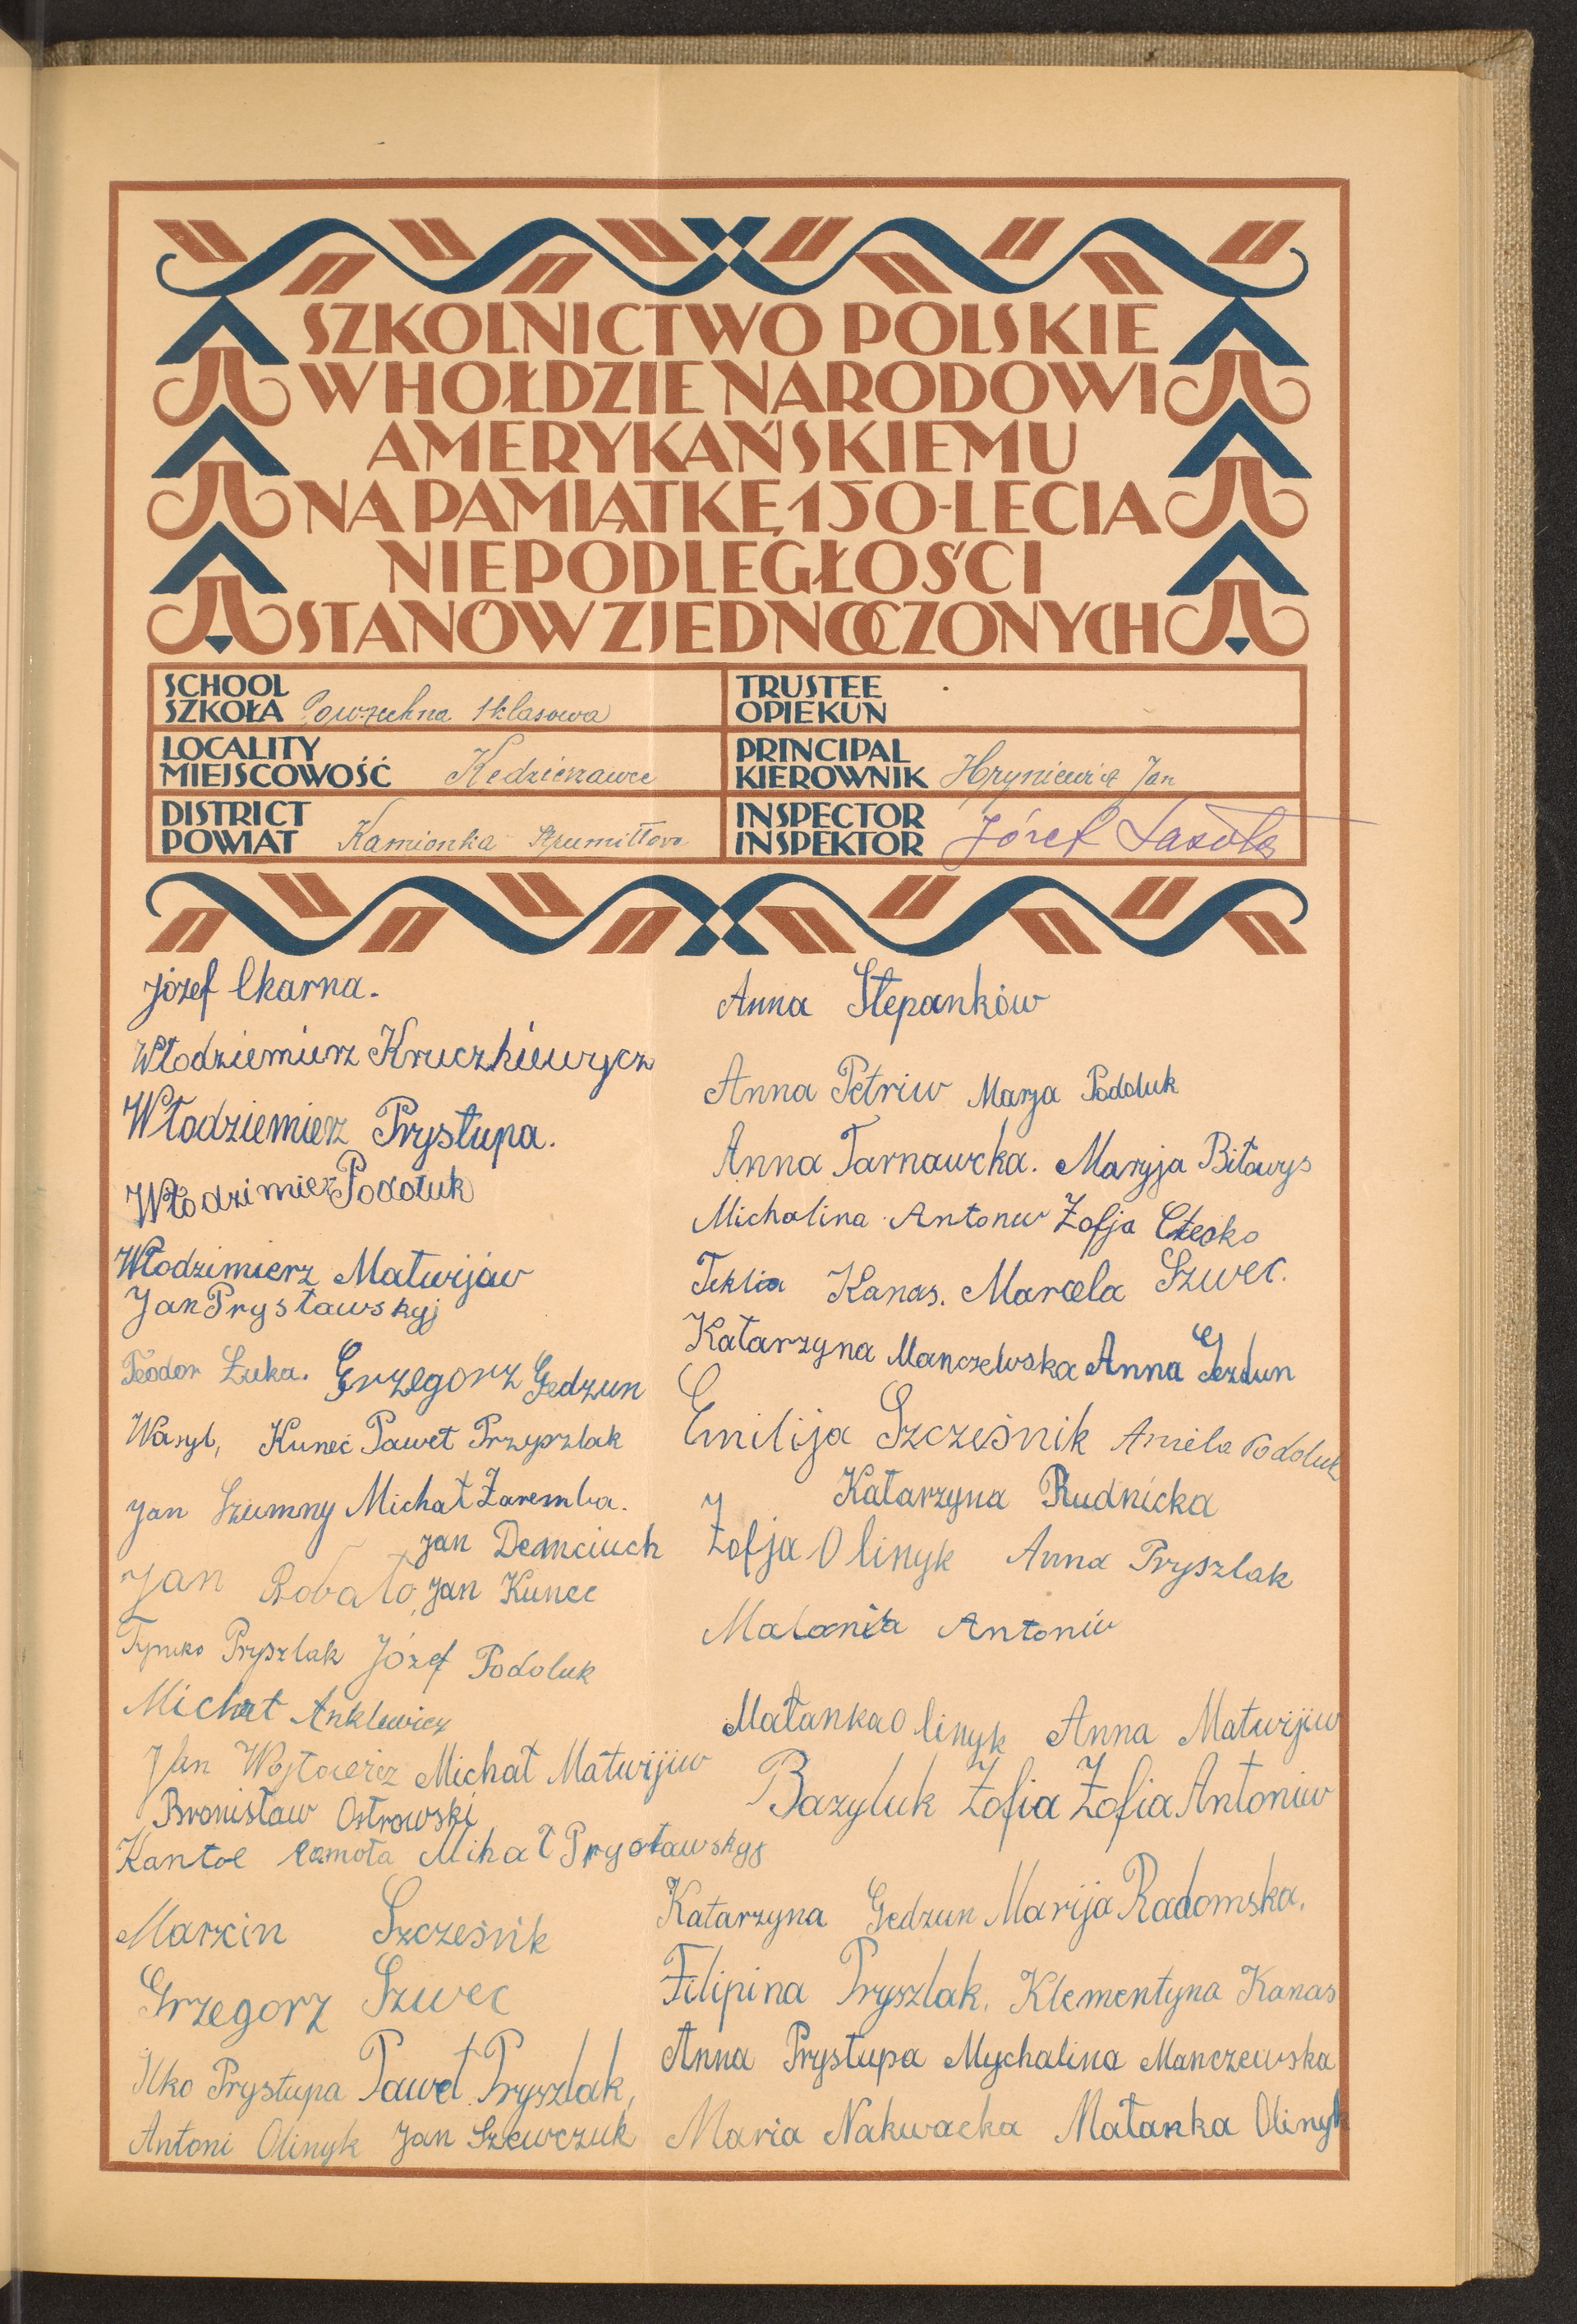 SZKOLNICTWO POLSKIE
W HOŁDZIE NARODOWI
AMERYKAŃSKIEMU
NA PAMIĄTKĘ 150-LECIA
NIEPODLEGŁOŚCI
STANÓW ZJEDNOCZONYCH
SCHOOL
SZKOŁA Powszechna 1 klasowa
TRUSTEE
OPIEKUN
LOCALITY
MIEJSCOWOŚĆ Kędzierzawce
PRINCIPAL
KIEROWNIK Hryniewicz Jan
DISTRICT
POWIAT Kamionka Strumiłłowa
INSPECTOR
INSPEKTOR Józef
Józef Charna.
Włodziemierz Kruczkiewycz
Włodziemierz Prystupa.
Włodzimierz Podoluk
Włodzimierz Matwijów
Jan Prystawskyj
Teodor Łuka. Grzegorz Gedzun
Wasyl, Kuneć Paweł Przyszlak
Jan Szumny Michał Zaremba.
Jan Demciuch
Jan Robało, Jan Kunec
Tymko Pryszlak Józef Podoluk
Michał Anklewicz
Jan Wojtowicz Michał Matwijiw
Bronisław Ostrowski
Mihał Prystawskyj
Marzcin Szcześnik
Grzegorz Szwec
Ilko Prystupa Paweł Pryszlak,
Antoni Olinyk Jan Szewczuk
Anna Stepanków
Anna Petriw Marja Podoluk
Anna Tarnawcka. Maryja Biłowys
Michalina Antoniw Zofja
Teklia Kanas. Marcela Szwec.
Katarzyna Manczewska Anna Gezdun
Emilija Szcześnik Aniela Podoluk
Katarzyna Rudnicka
Zofja Olinyk Anna Pryszlak
Malania Antoniw
Małanka Olinyk Anna Matwijiw
Bazyluk Zofia Zofia Antoniw
Katarzyna Gedzun Marija Radomska.
Filipina Pryszlak. Klementyna Kanas
Anna Prystupa Mychalina Manczewska
Maria Nakwacka Małanka Olinyk